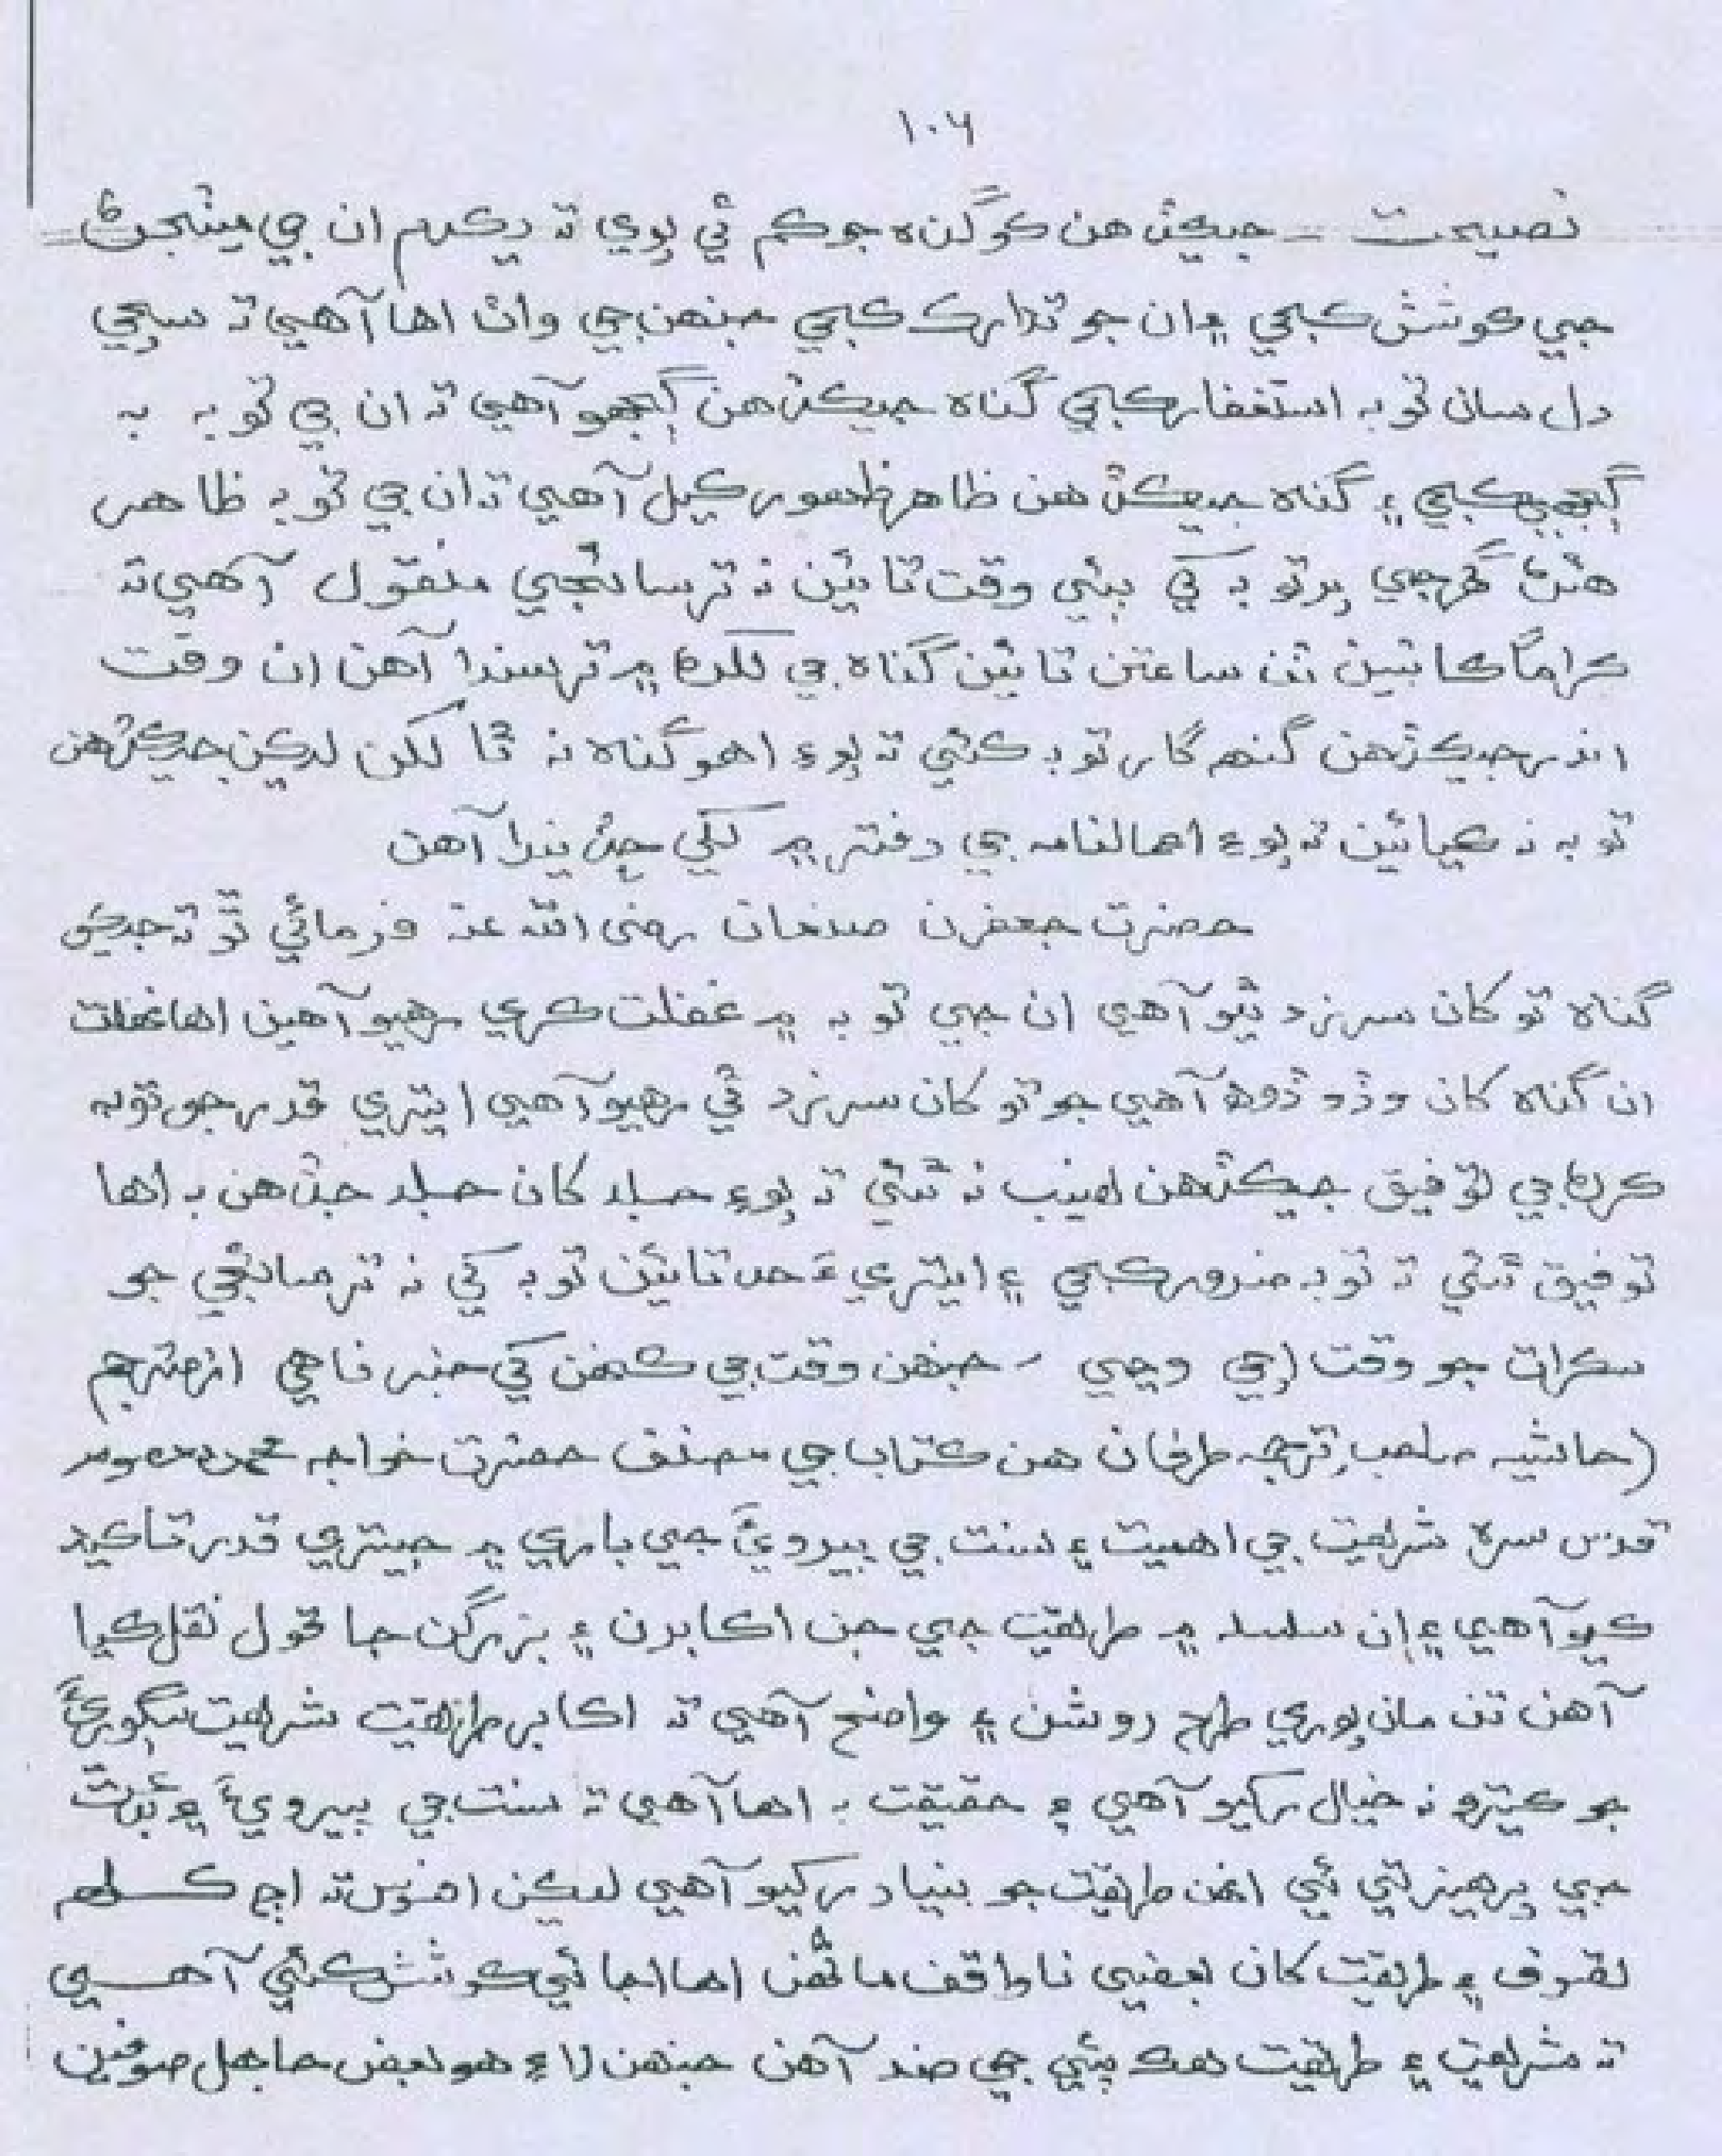 ۱۰۶
نصيحت - جيڪڏهن ڪو گناه جو ڪم ٿي پوي ته يڪدم ان جي ميٽجڻ
جي ڪوشش ڪجي ۽ ان جو تدارڪ ڪجي جنهن جي واٽ اها آهي ته سچي
دل سان توبه استغفار ڪجي گناه جيڪڏهن ڳجهو آهي ته ان جي توبه به
ڳجهي ڪجي ۽ گناه جيڪڏهن ظاهر ظهور ڪيل آهي ته ان جي توبه ظاهر
هئڻ گهرجي پر توبه کي ٻئي وقت تائين نه ترسائجي منقول آهي ته
ڪراماً ڪاتبين ٽن ساعتن تائين گناه جي لکڻ ۾ ترسندا آهن ان وقت
اندر جيڪڏهن گنهگار توبه ڪئي ته پوءِ اهو گناه نه ٿا لکن ليڪن جيڪڏهن
توبه نه ڪيائين ته پوءِ اعمالنامه جي دفتر ۾ لکي ڇڏيندا آهن
حضرت جعفر بن سنان رضي الله عنه فرمائي ٿو ته جيڪي
گناه تو کان سرزد ٿيو آهي ان جي توبه ۾ غفلت ڪري رهيو آهين اها غفلت
ان گناه کان وڏو ڏوه آهي جو تو کان سرزد ٿي رهيو آهي ايتري قدر جو توبه
ڪرڻ جي توفيق جيڪڏهن نصيب نه ٿئي ته پوءِ جلد کان جلد جڏهن به اها
توفيق ٿئي ته توبه ضرور ڪجي ۽ ايتري حد تائين توبه کي نه ترسائجي جو
سڪرات جو وقت اچي وڃي - جنهن وقت جي ڪنهن کي خبر ناهي ازمترجم
(حاشيه ترجمه طرفان هن ڪتاب جي مصنف حضرت خواجه محمد معصوم
قدس سره شريعت جي اهميت ۽ سنت جي پيروي جي باري ۾ جيتري قدر تاڪيد
ڪيو آهي ۽ ان سلسله ۾ طريقت جي جن اڪابرن ۽ بزرگن جا قول نقل ڪيا
آهن تن مان پوري طرح روشن ۽ واضح آهي ته اڪابر طريقت شريعت
جو ڪيترو نه خيال رکيو آهي ۽ حقيقت به اها آهي ته سنت جي پيروي ۽ بدعت
جي پرهيز تي ئي انهن طريقت جو بنياد رکيو آهي ليڪن افسوس ته اڄ ڪلهه
تصوف ۽ طريقت کان بعضي ناواقف ماڻهن اها اجائي ڪوشش ڪئي آهي
ته شريعت ۽ طريقت هڪ ٻئي جي ضد آهن جنهن لاءِ هو بعض جاهل صوفين